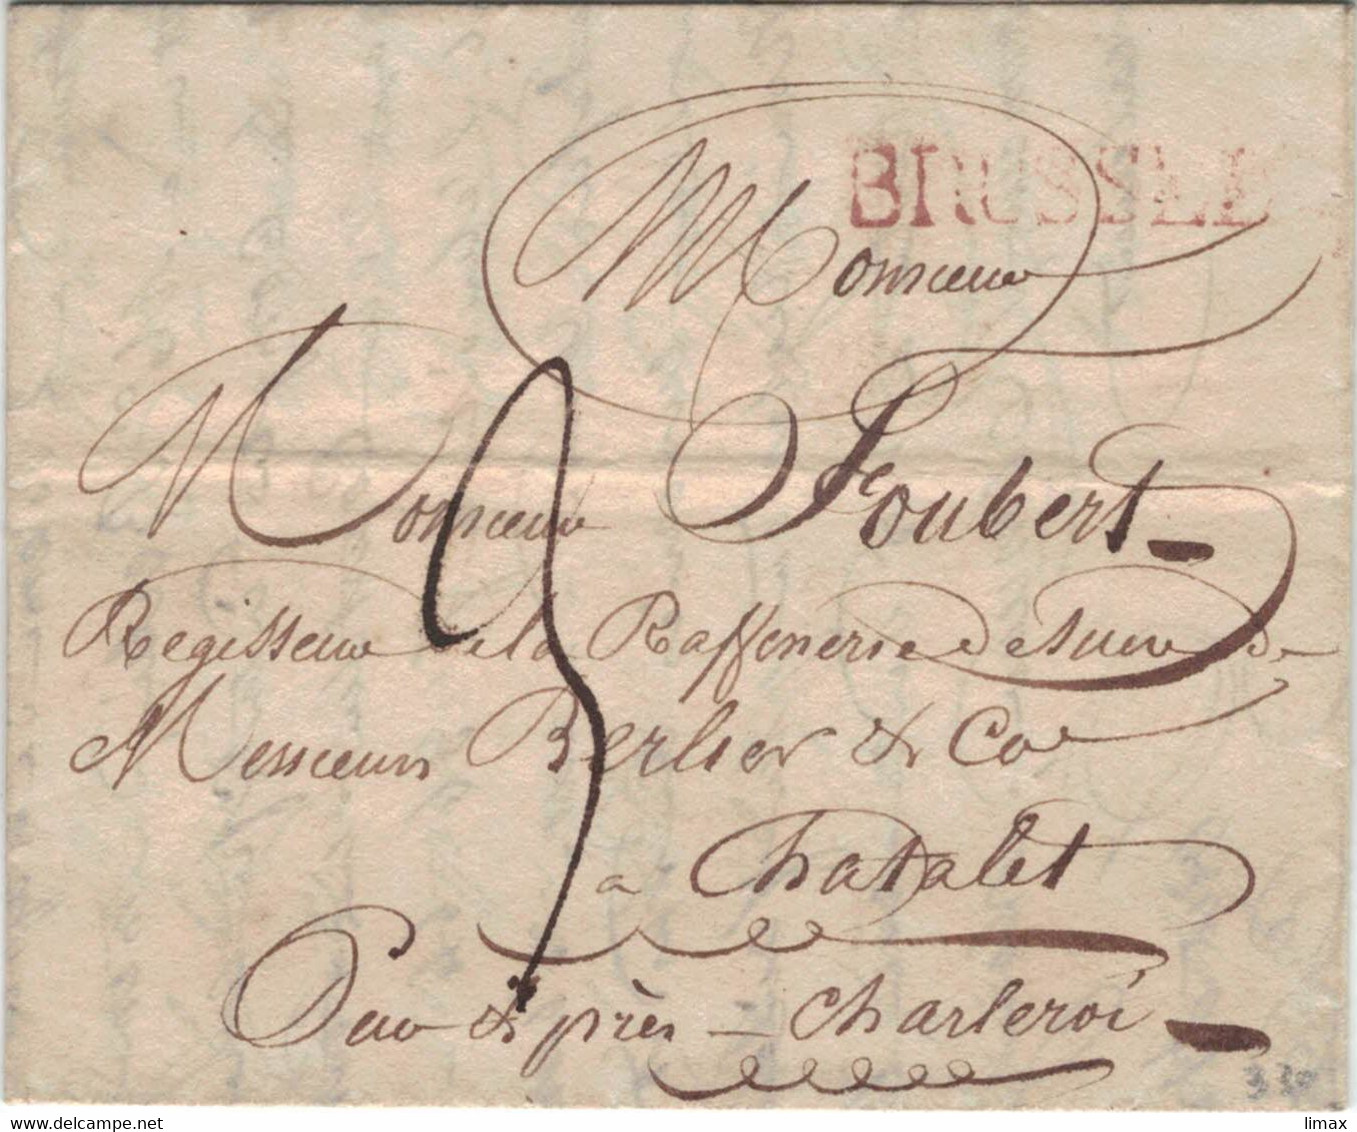 BRUSSEL
Monsieur
Monsieur Joubert
Regisseur de la Raffenerie de sucre de
Messieurs Berlier & Co
a Chatalet
Par & près - Charleroi
3
330
delcampe.net
limax